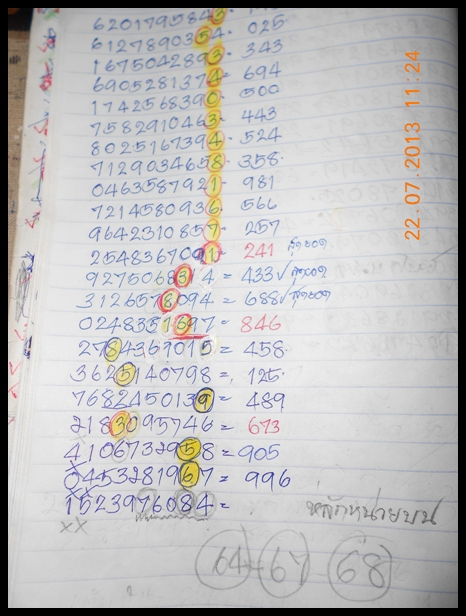 6127890354. 025
1675042893. 343
6905281374= 694
1742568390. 500
7582910463. 443
8025167394. 524
7129034658. 358.
0463587921. 981
7214580936. 566
9642310857. 257
2548367091= 241
9275068314 = 433
3126578094 = 688
0248351697 = 846
2784369015 = 458.
3625140798 = 125.
7682450139 = 489
2183095746 = 673
4106732958 = 905
0453281967 = 996
1523976084 =
xx
หลักหน่วยบน
64-67 68
22.07.2013 11:24